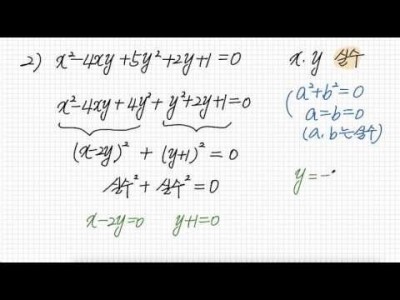 2) x²-4xy+5y²+2y+1=0
x²-4xy+4y²+y²+2y+1=0
(x-2y)² + (y+1)² = 0
실수² + 실수² = 0
x-2y=0 y+1=0
x.y 실수
(a²+b²=0
a=b=0
(a, b는 실수)
y=-